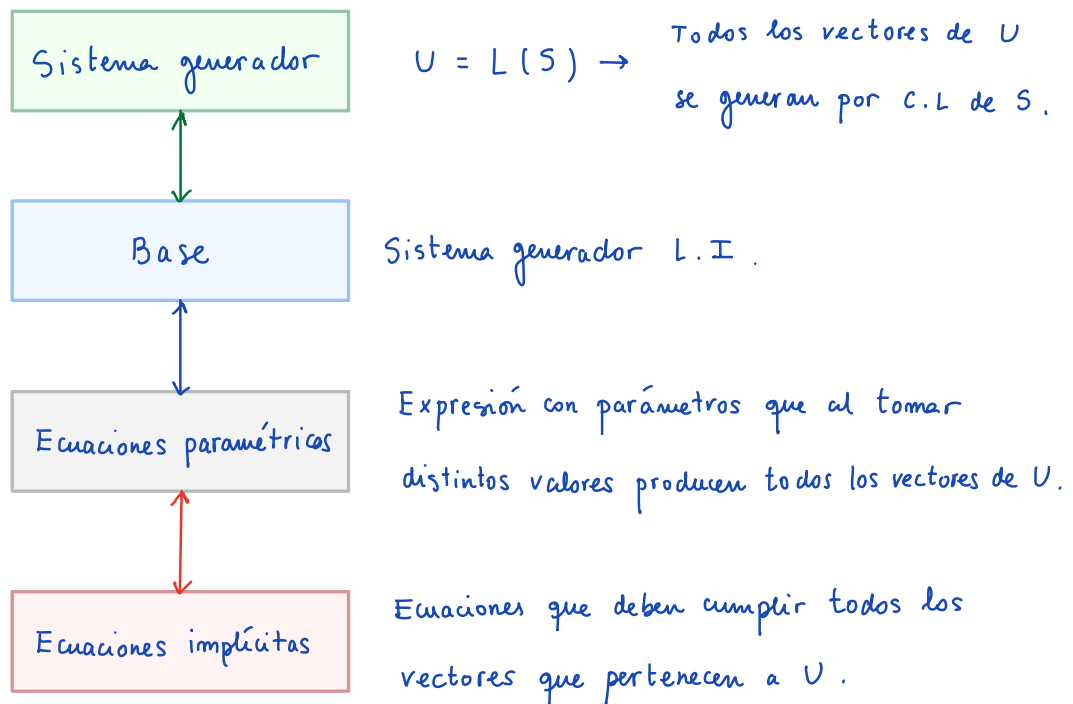 Sistema generador
U = L(S) →
Todos los vectores de U
se generan por C.L de S.
Base
Sistema generador L.I.
Ecuaciones paramétricas
Expresión con parámetros que al tomar
distintos valores producen todos los vectores de U.
Ecuaciones implícitas
Ecuaciones que deben cumplir todos los
vectores que pertenecen a U.